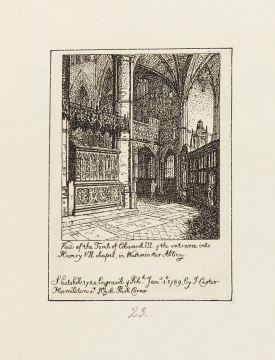 View of the Tomb of Edward III. & the entrance into
Henry VII chapel, in Westminster Abbey.
Sketch'd 1782 Engraved & Pub. Jan. 1. 1789, by J. Carter
Hamilton St. Hyde Park Corner.
23.